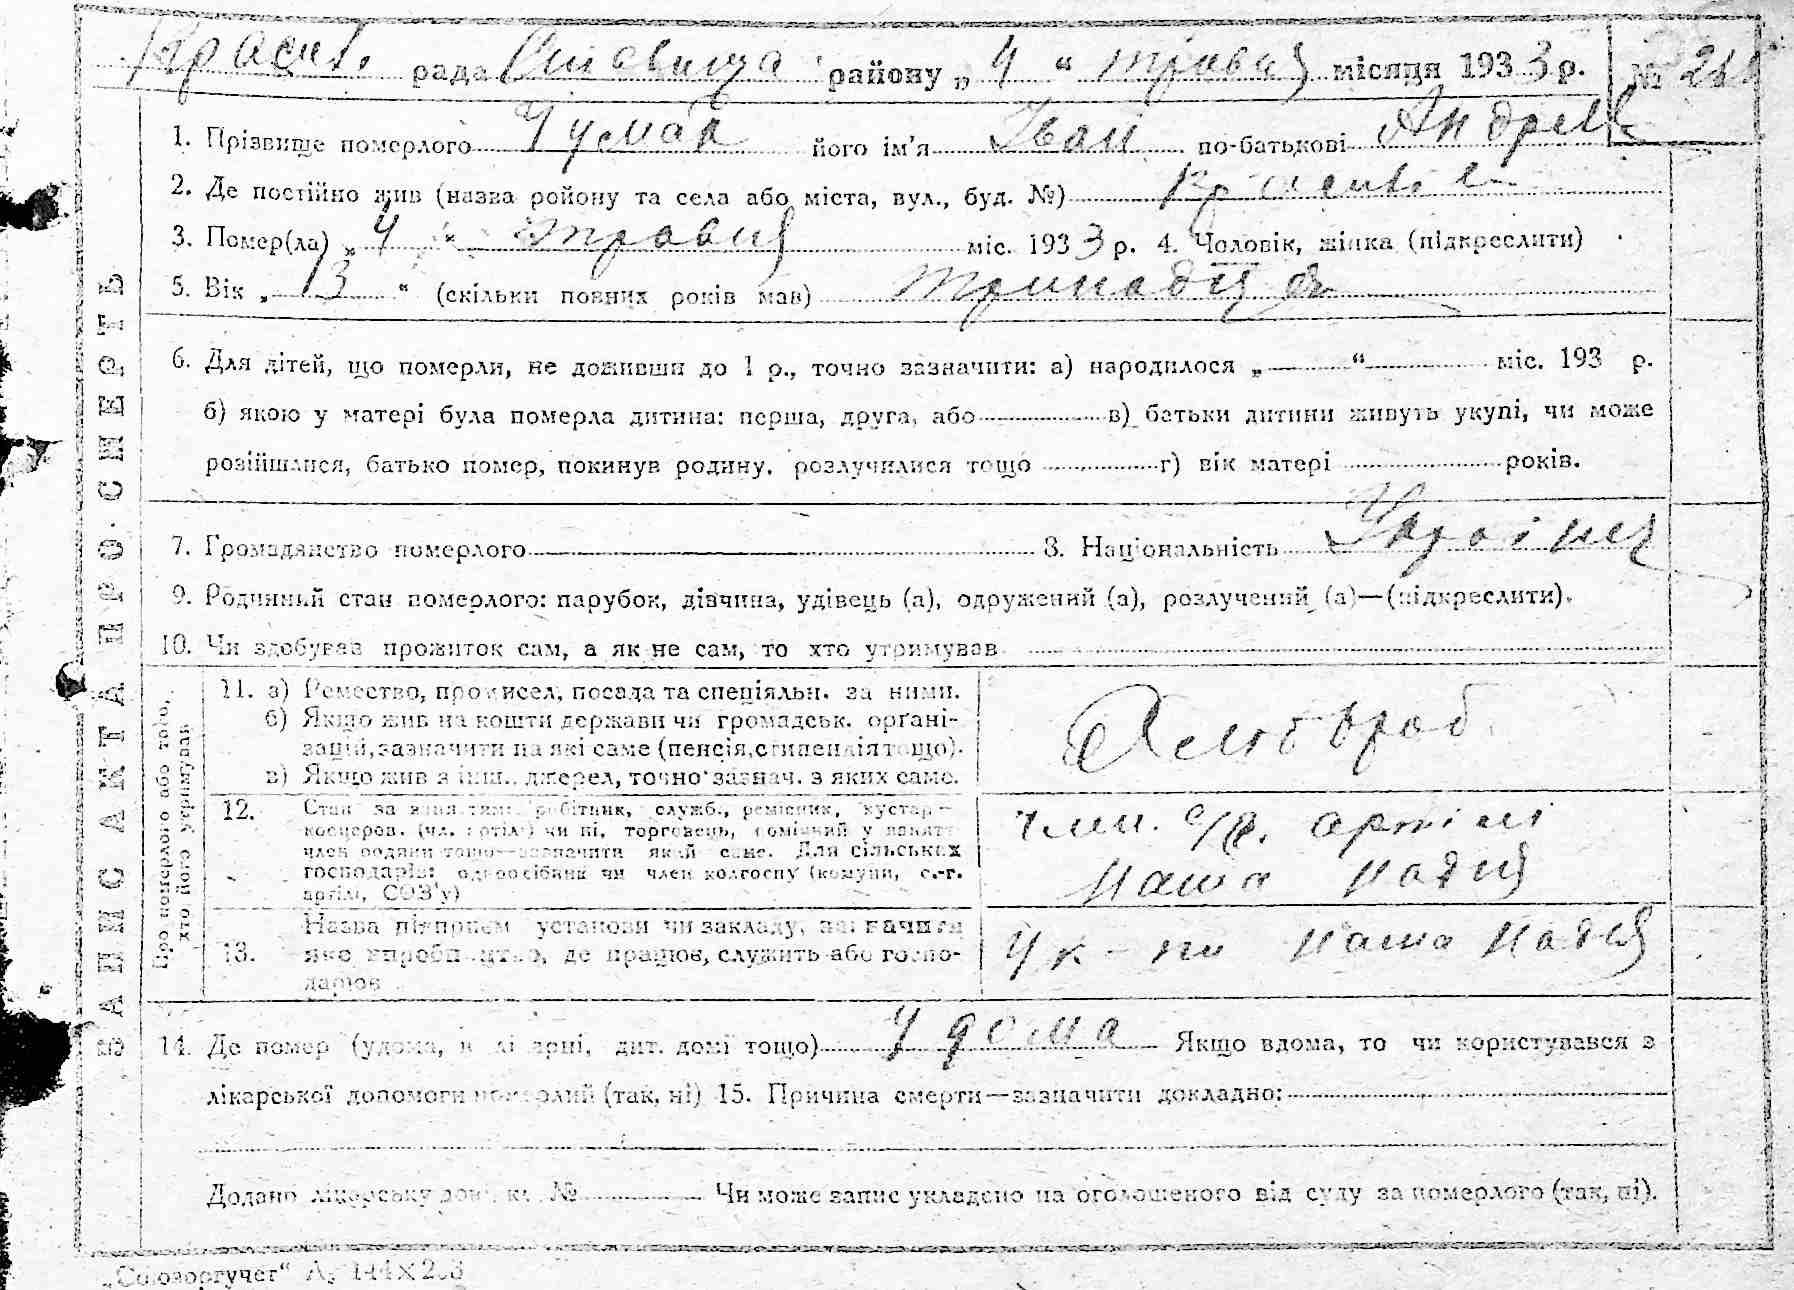 рада району „ 4 “ травня місяця 1933 р. №
1. Прізвище померлого Чумак його ім'я Іван по-батькові Андрев
2. Де постійно жив (назва ройону та села або міста, вул., буд. №)
3. Помер(ла) „ 4 “ травня міс. 1933 р. 4. Чоловік, жінка (підкреслити)
5. Вік „ 13 “ (скільки повних років мав) тринадцять
6. Для дітей, що померли, не доживши до 1 р., точно зазначити: а) народилося „ “ міс. 193 р.
б) якою у матері була померла дитина: перша, друга, або в) батьки дитини живуть укупі, чи може
розійшлися, батько помер, покинув родину, розлучилися тощо г) вік матері років.
7. Громадянство померлого 8. Національність Українец
9. Родинний стан померлого: парубок, дівчина, удівець (а), одружений (а), розлучений (а)—(підкреслити).
10. Чи здобував прожиток сам, а як не сам, то хто утримував
ЗАПИС АКТА ПРО СМЕРТЬ
Про померлого або того,
хто його утримував
11. а) Ремество, промисел, посада та спеціяльн. за ними.
б) Якщо жив на кошти держави чи громадськ. орґані-
зацій, зазначити на які саме (пенсія, стипендія тощо).
в) Якщо жив з інш. джерел, точно зазнач. з яких саме.
Хлібороб
12. Стан за заняттям: робітник, служб., ремісник, кустар-
кооперов. (чл. артілі) чи ні, торговець,
член родини тощо—зазначити який саме. Для сільських
господарів: одноосібник чи член колгоспу (комуни, с.-г.
артілі, СОЗ'у)
член. с/г. артілі
Наша надія
13. Назва підприєм. установи чи закладу, зазначити
яке виробництво, де працює, служить або госпо-
дарює
У к-пі наша надія
14. Де помер (удома, в лікарні, дит. домі тощо) У дома Якщо вдома, то чи користувався з
лікарської допомоги померлий (так, ні) 15. Причина смерти—зазначити докладно:
Додано лікарську довідку № Чи може запис укладено на оголошеного від суду за померлого (так, ні).
„Союзоргучет“